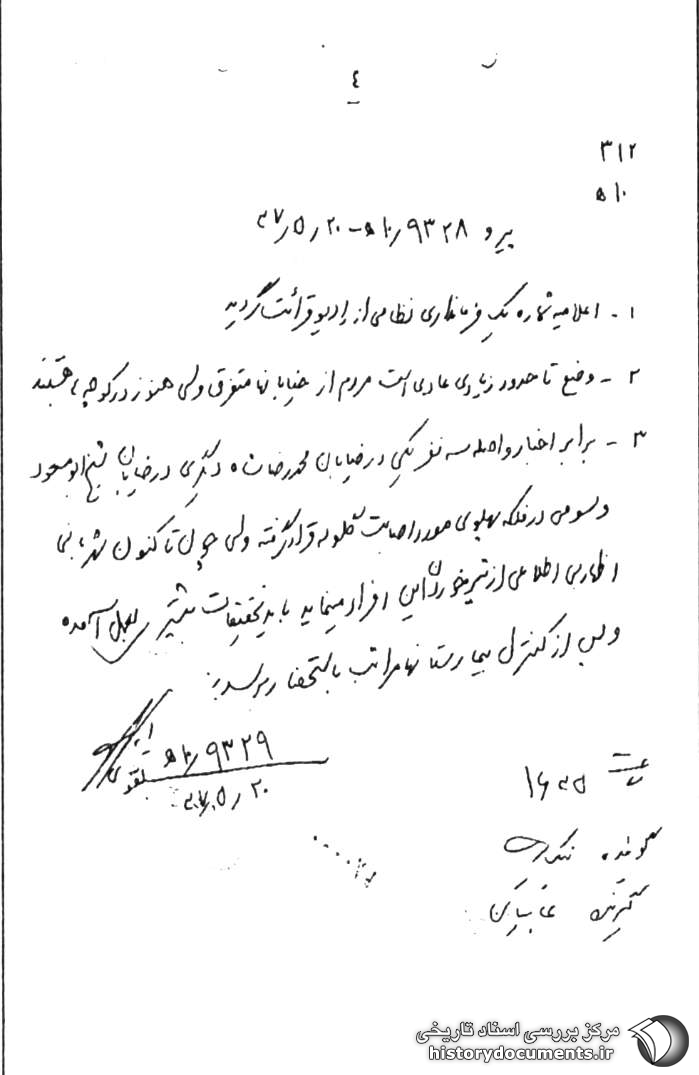 ٤
۳۱۲
۱۰ ه
پیرو ۹۳۲۸ /۱۰ ه - ۲۰ /۵ /۳۷
۱ - اعلامیه شماره یک فرمانداری نظامی از رادیو قرائت گردید
۲ - وضع تا حدود زیادی عادی است مردم از خیابانها متفرق ولی هنوز در کوچه ها هستند
۳ - برابر اخبار واصله سه نفر یکی در خیابان محمدرضا شاه دیگری در خیابان شیخ ابومسعود
و سومی در فلکه پهلوی مورد اصابت گلوله قرار گرفته ولی چون تاکنون شهربانی
اظهار بی اطلاعی از تیر خوردن این افراد مینماید باید تحقیقات بیشتر بعمل آمده
و پس از کنترل بیمارستانها مراتب باستحضار برسد
۹۳۲۹ /۱۰ ه
تقوی
۲۰ /۵ /۳۷
ساعت ۱۶۴۵
گوینده
گیرنده
مرکز بررسی اسناد تاریخی
historydocuments.ir